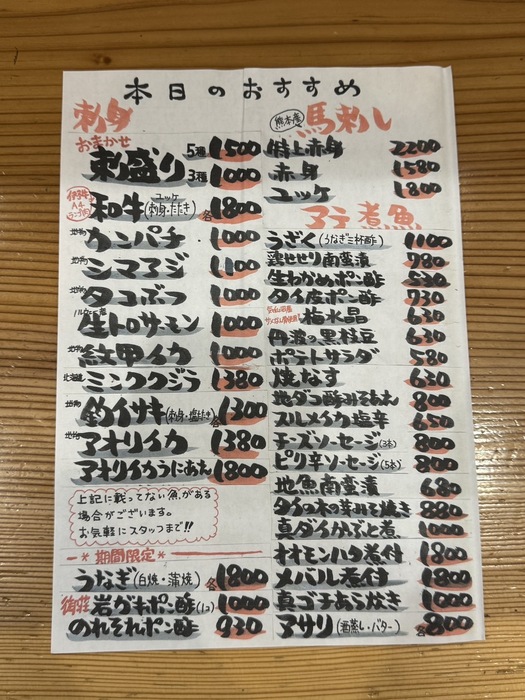 本日のおすすめ
刺身
おまかせ
刺盛り 5種 1500
3種 1000
和牛 ユッケ (刺身・たたき) 各1800
地物 カンパチ 1000
シマアジ 1100
地物 タコぶつ 1000
ノルウェー産
生トロサーモン 1000
地物 紋甲イカ 1000
北海道 ミンククジラ 1380
地物 釣イサキ (刺身・塩たたき) 各1300
地物 アオリイカ 1380
アオリイカうにあえ 1800
上記に載ってない魚がある
場合がございます。
お気軽にスタッフまで!!
* 期間限定 *
うなぎ (白焼・蒲焼) 各1800
御荘 岩ガキポン酢 (1コ) 1000
のれそれポン酢 930
熊本産 馬刺し
特上赤身 2200
赤身 1580
ユッケ 1800
アテ 煮魚
うざく (うなぎ三杯酢) 1100
鶏せせり南蛮漬 780
生わかめポン酢 530
タイ皮ポン酢 730
梅水晶 630
丹波の黒枝豆 630
ポテトサラダ 580
焼なす 630
地ダコ酢みそあえ 800
スルメイカ塩辛 650
チーズソーセージ (3本) 800
ピリ辛ソーセージ (5本) 800
地魚南蛮漬 680
タイの木の芽みそ焼き 880
真ダイかぶと煮 1000
オオモンハタ煮付 1800
メバル煮付 1800
真ゴチあら炊き 1000
アサリ (酒蒸し・バター) 各800